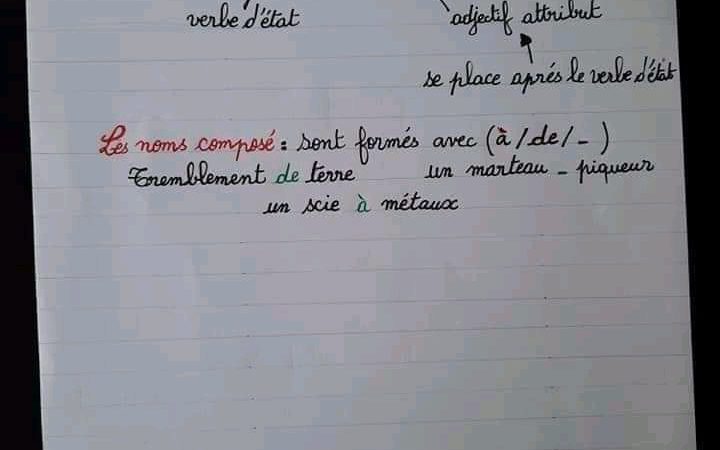 verbe d'état adjectif attribut
se place aprés le verbe d'état
Les noms composé : sont formés avec (à / de / - )
Tremblement de terre un marteau - piqueur
un scie à métaux